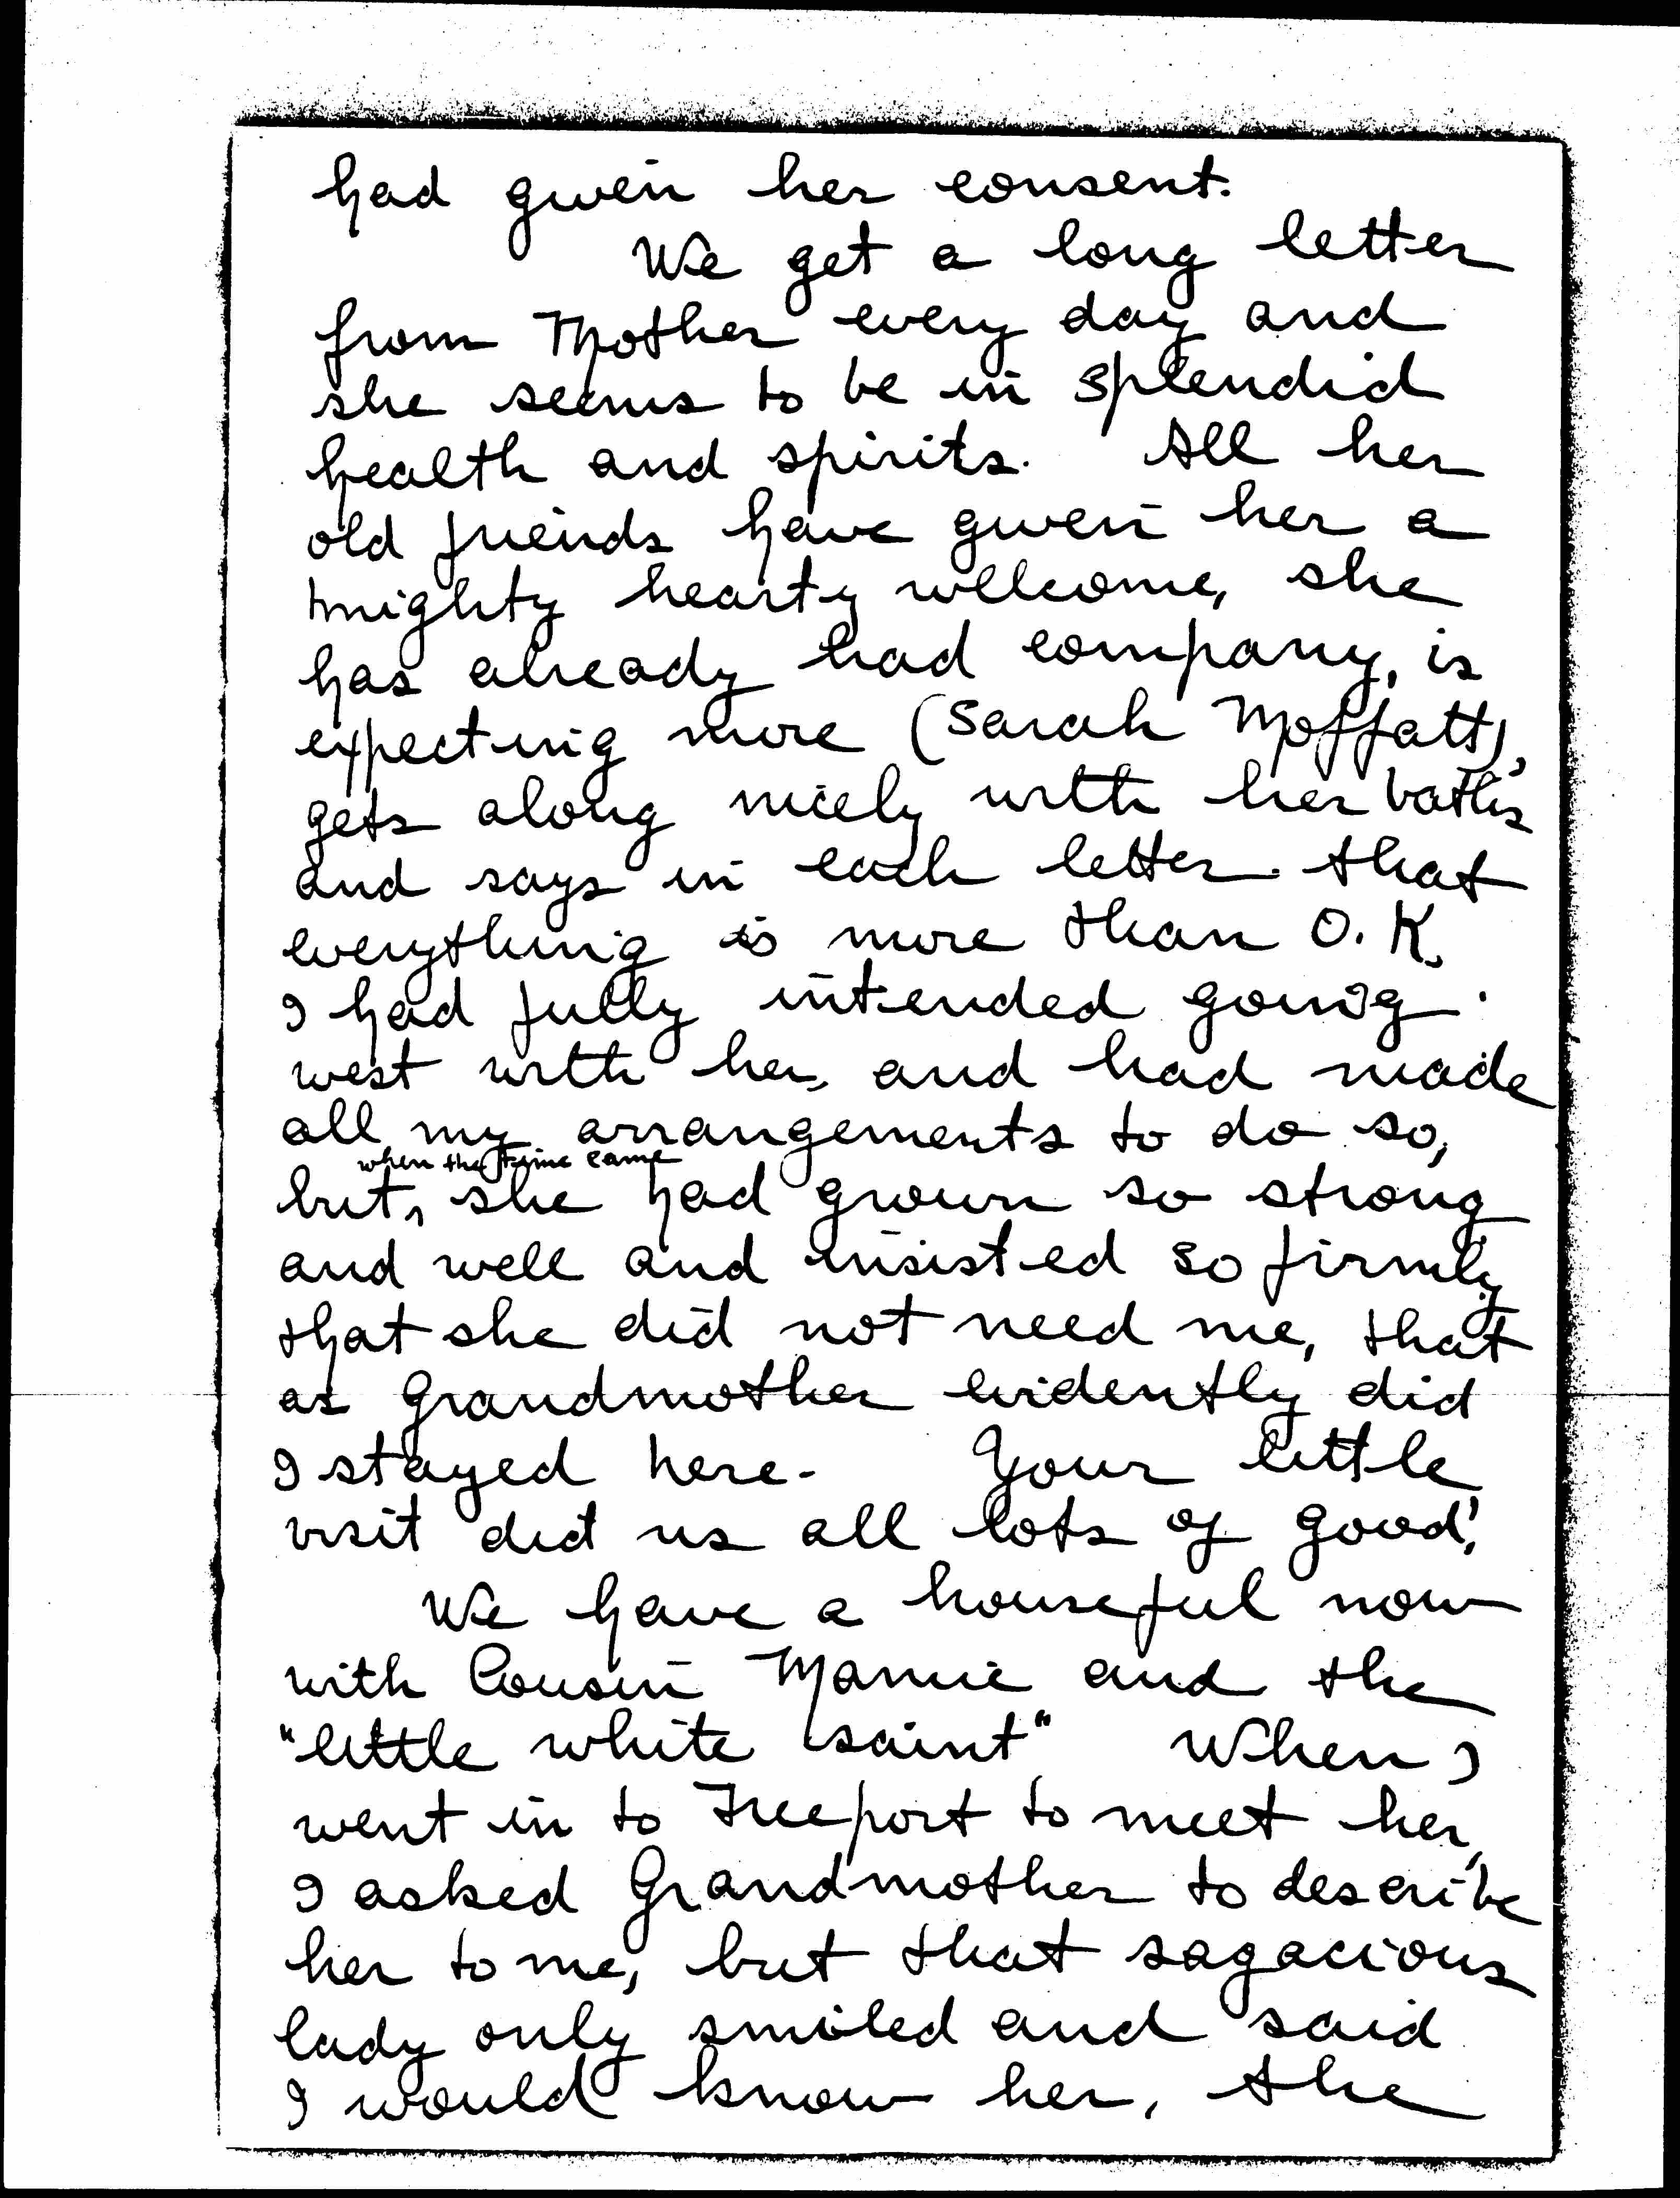 had given her consent.
We get a long letter
from Mother every day and
she seems to be in splendid
health and spirits. All her
old friends have given her a
mighty hearty wellcome, she
has already had company, is
expecting more (Sarah Moffatt),
gets along nicely with her baths
and says in each letter that
everything is more than O.K.
I had fully intended going
west with her, and had made
all my arrangements to do so,
when the time came
but, she had grown so strong
and well and insisted so firmly
that she did not need me, that
as Grandmother evidently did
I stayed here. Your little
visit did us all lots of good!
We have a houseful now
with Cousin Mamie and the
"little white saint" When I
went in to Freeport to meet her,
I asked Grandmother to describe
her to me, but that sagacious
lady only smiled and said
I would know her, the